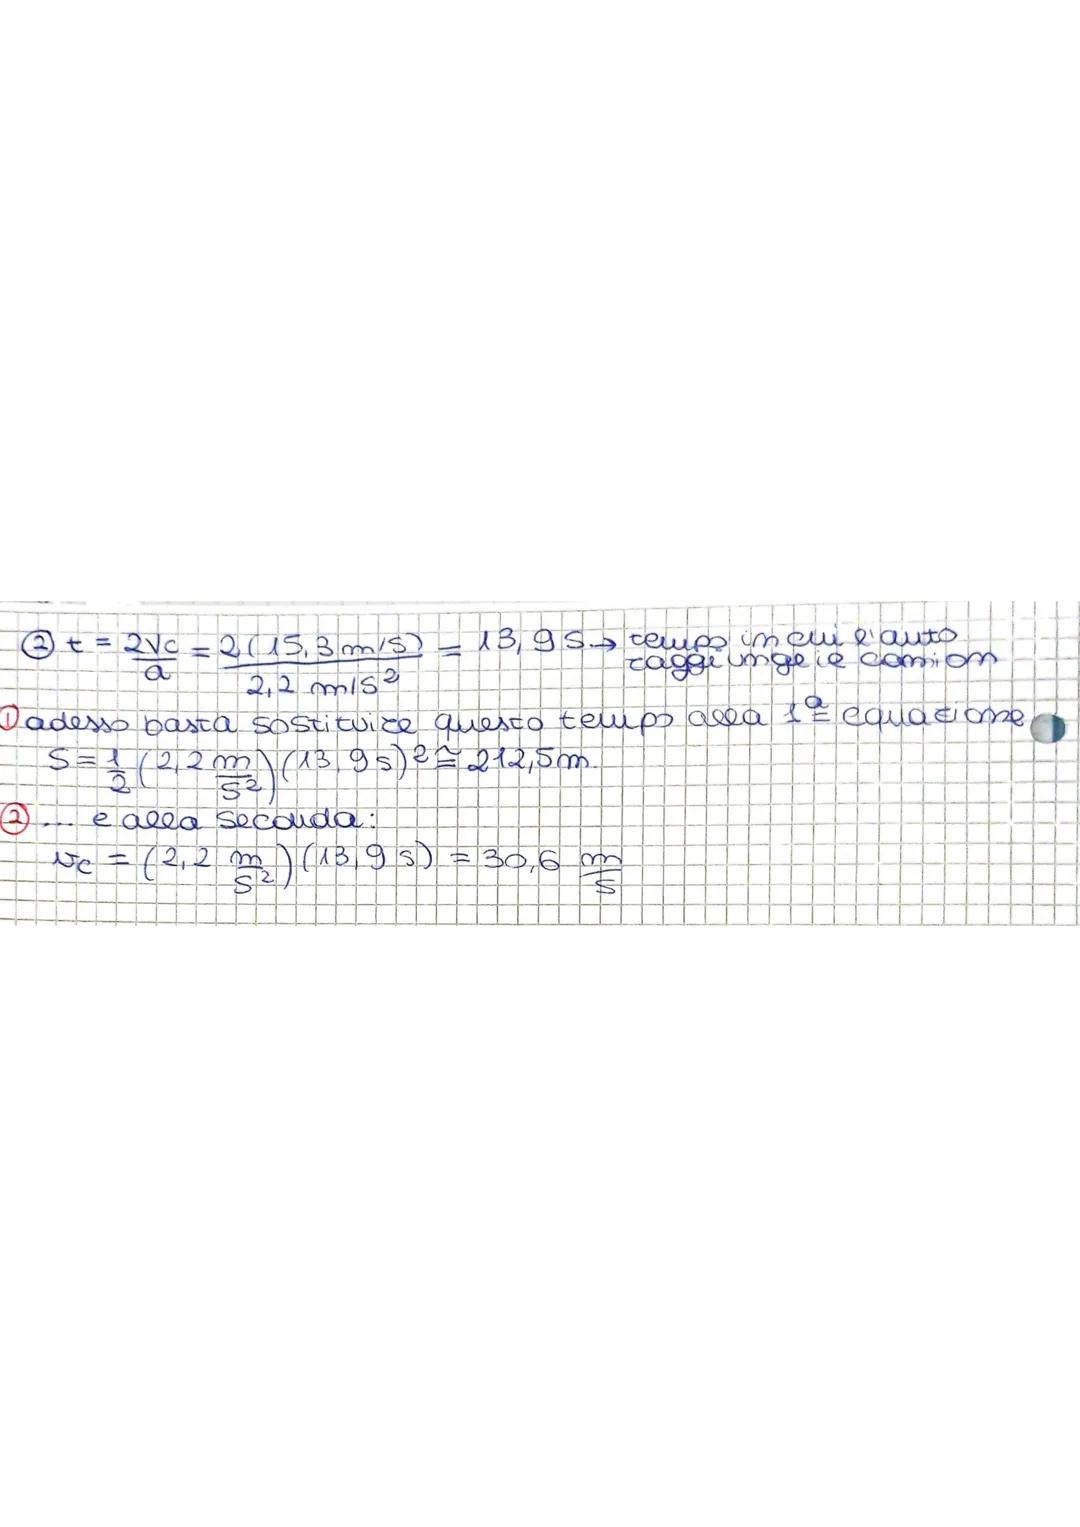 ② t = 2Vc/a = 2(15,3 m/s)/2,2 m/s² = 13,9 s → tempo in cui l'auto
raggiunge il camion
① adesso basta sostituire questo tempo alla 1ª equazione
S = 1/2 (2,2 m/s²)(13,9 s)² ≅ 212,5 m.
② ... e alla seconda:
vc = (2,2 m/s²)(13,9 s) = 30,6 m/s